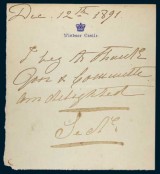 Dec. 12th 1891
Windsor Castle
I beg to thank
you & Committee
am delighted